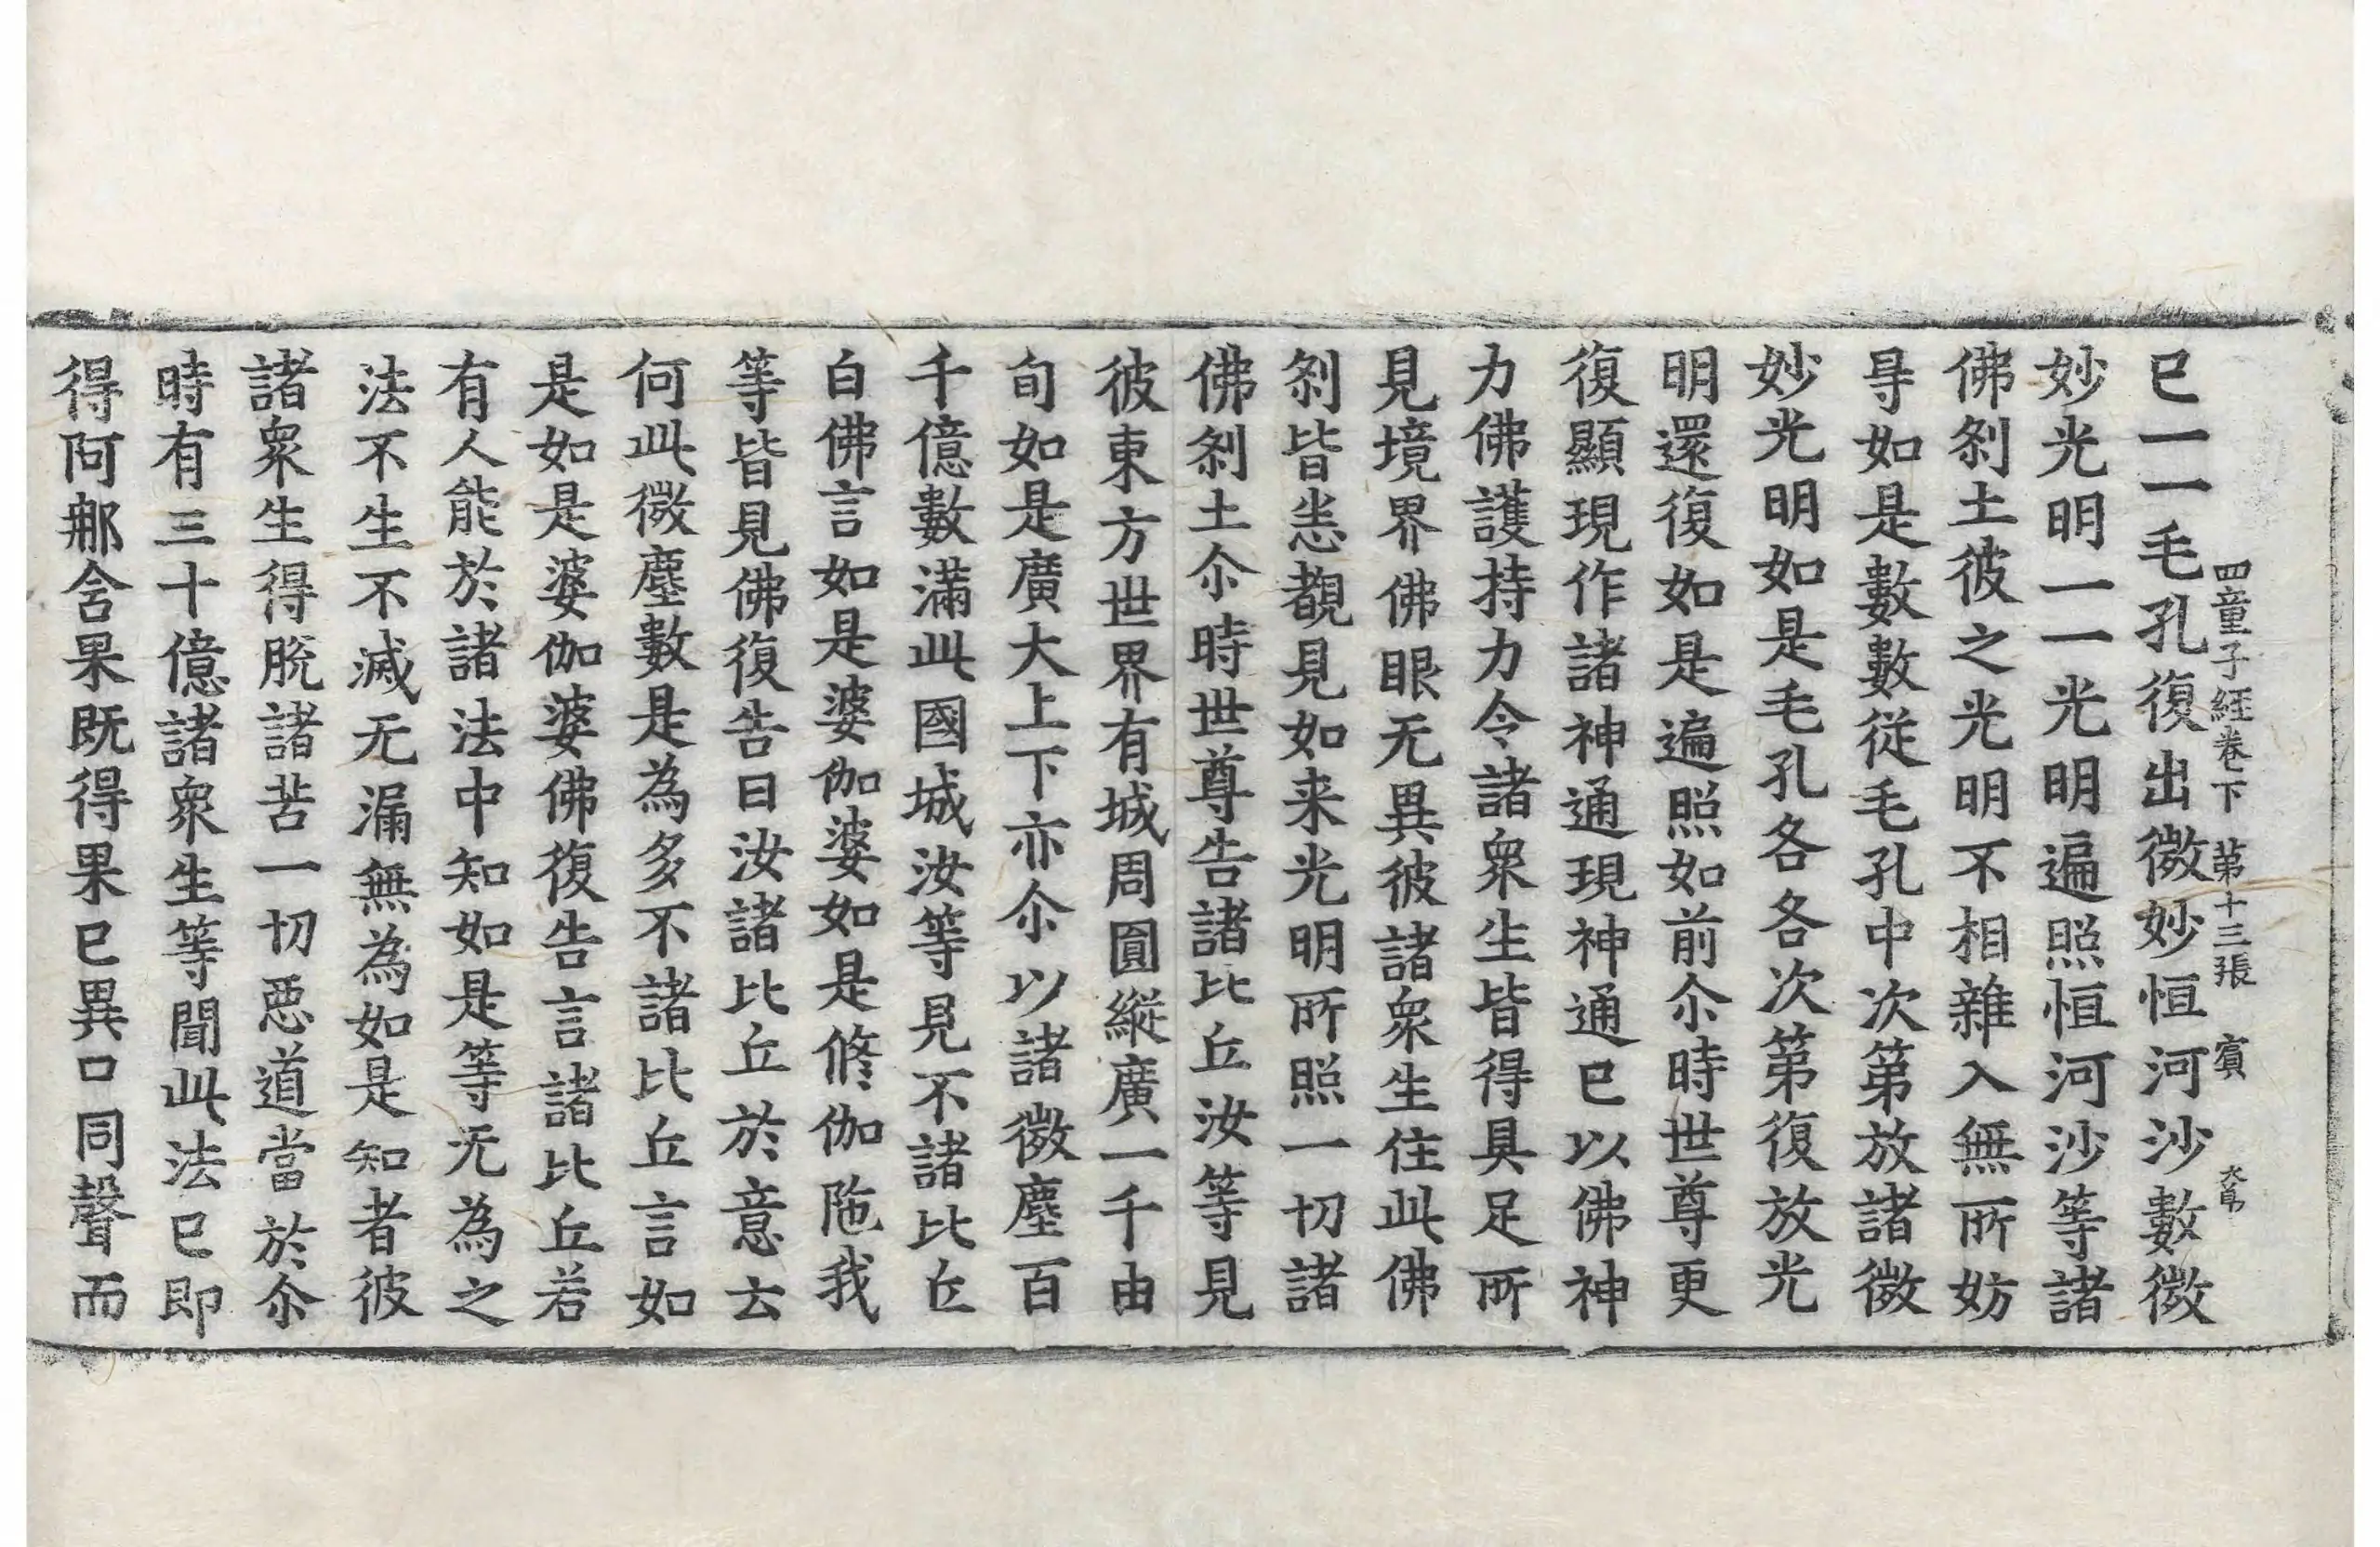 四童子経卷下 第十三張 賓
已一一毛孔復出微妙恒河沙數微
妙光明一一光明遍照恒河沙等諸
佛刹土彼之光明不相雜入無所妨
㝵如是數數從毛孔中次第放諸微
妙光明如是毛孔各各次第復放光
明還復如是遍照如前尒時世尊更
復顯現作諸神通現神通已以佛神
力佛護持力令諸衆生皆得具足所
見境界佛眼无異彼諸衆生住此佛
刹皆悉觀見如来光明所照一切諸
佛刹土尒時世尊告諸比丘汝等見
彼東方世界有城周圓縱廣一千由
旬如是廣大上下亦尒以諸微塵百
千億數滿此國城汝等見不諸比丘
白佛言如是婆伽婆如是脩伽陁我
等皆見佛復告曰汝諸比丘於意云
何此微塵數是為多不諸比丘言如
是如是婆伽婆佛復告言諸比丘若
有人能於諸法中知如是等无為之
法不生不滅无漏無為如是知者彼
諸衆生得脫諸苦一切惡道當於尒
時有三十億諸衆生等聞此法已即
得阿那含果既得果已異口同聲而